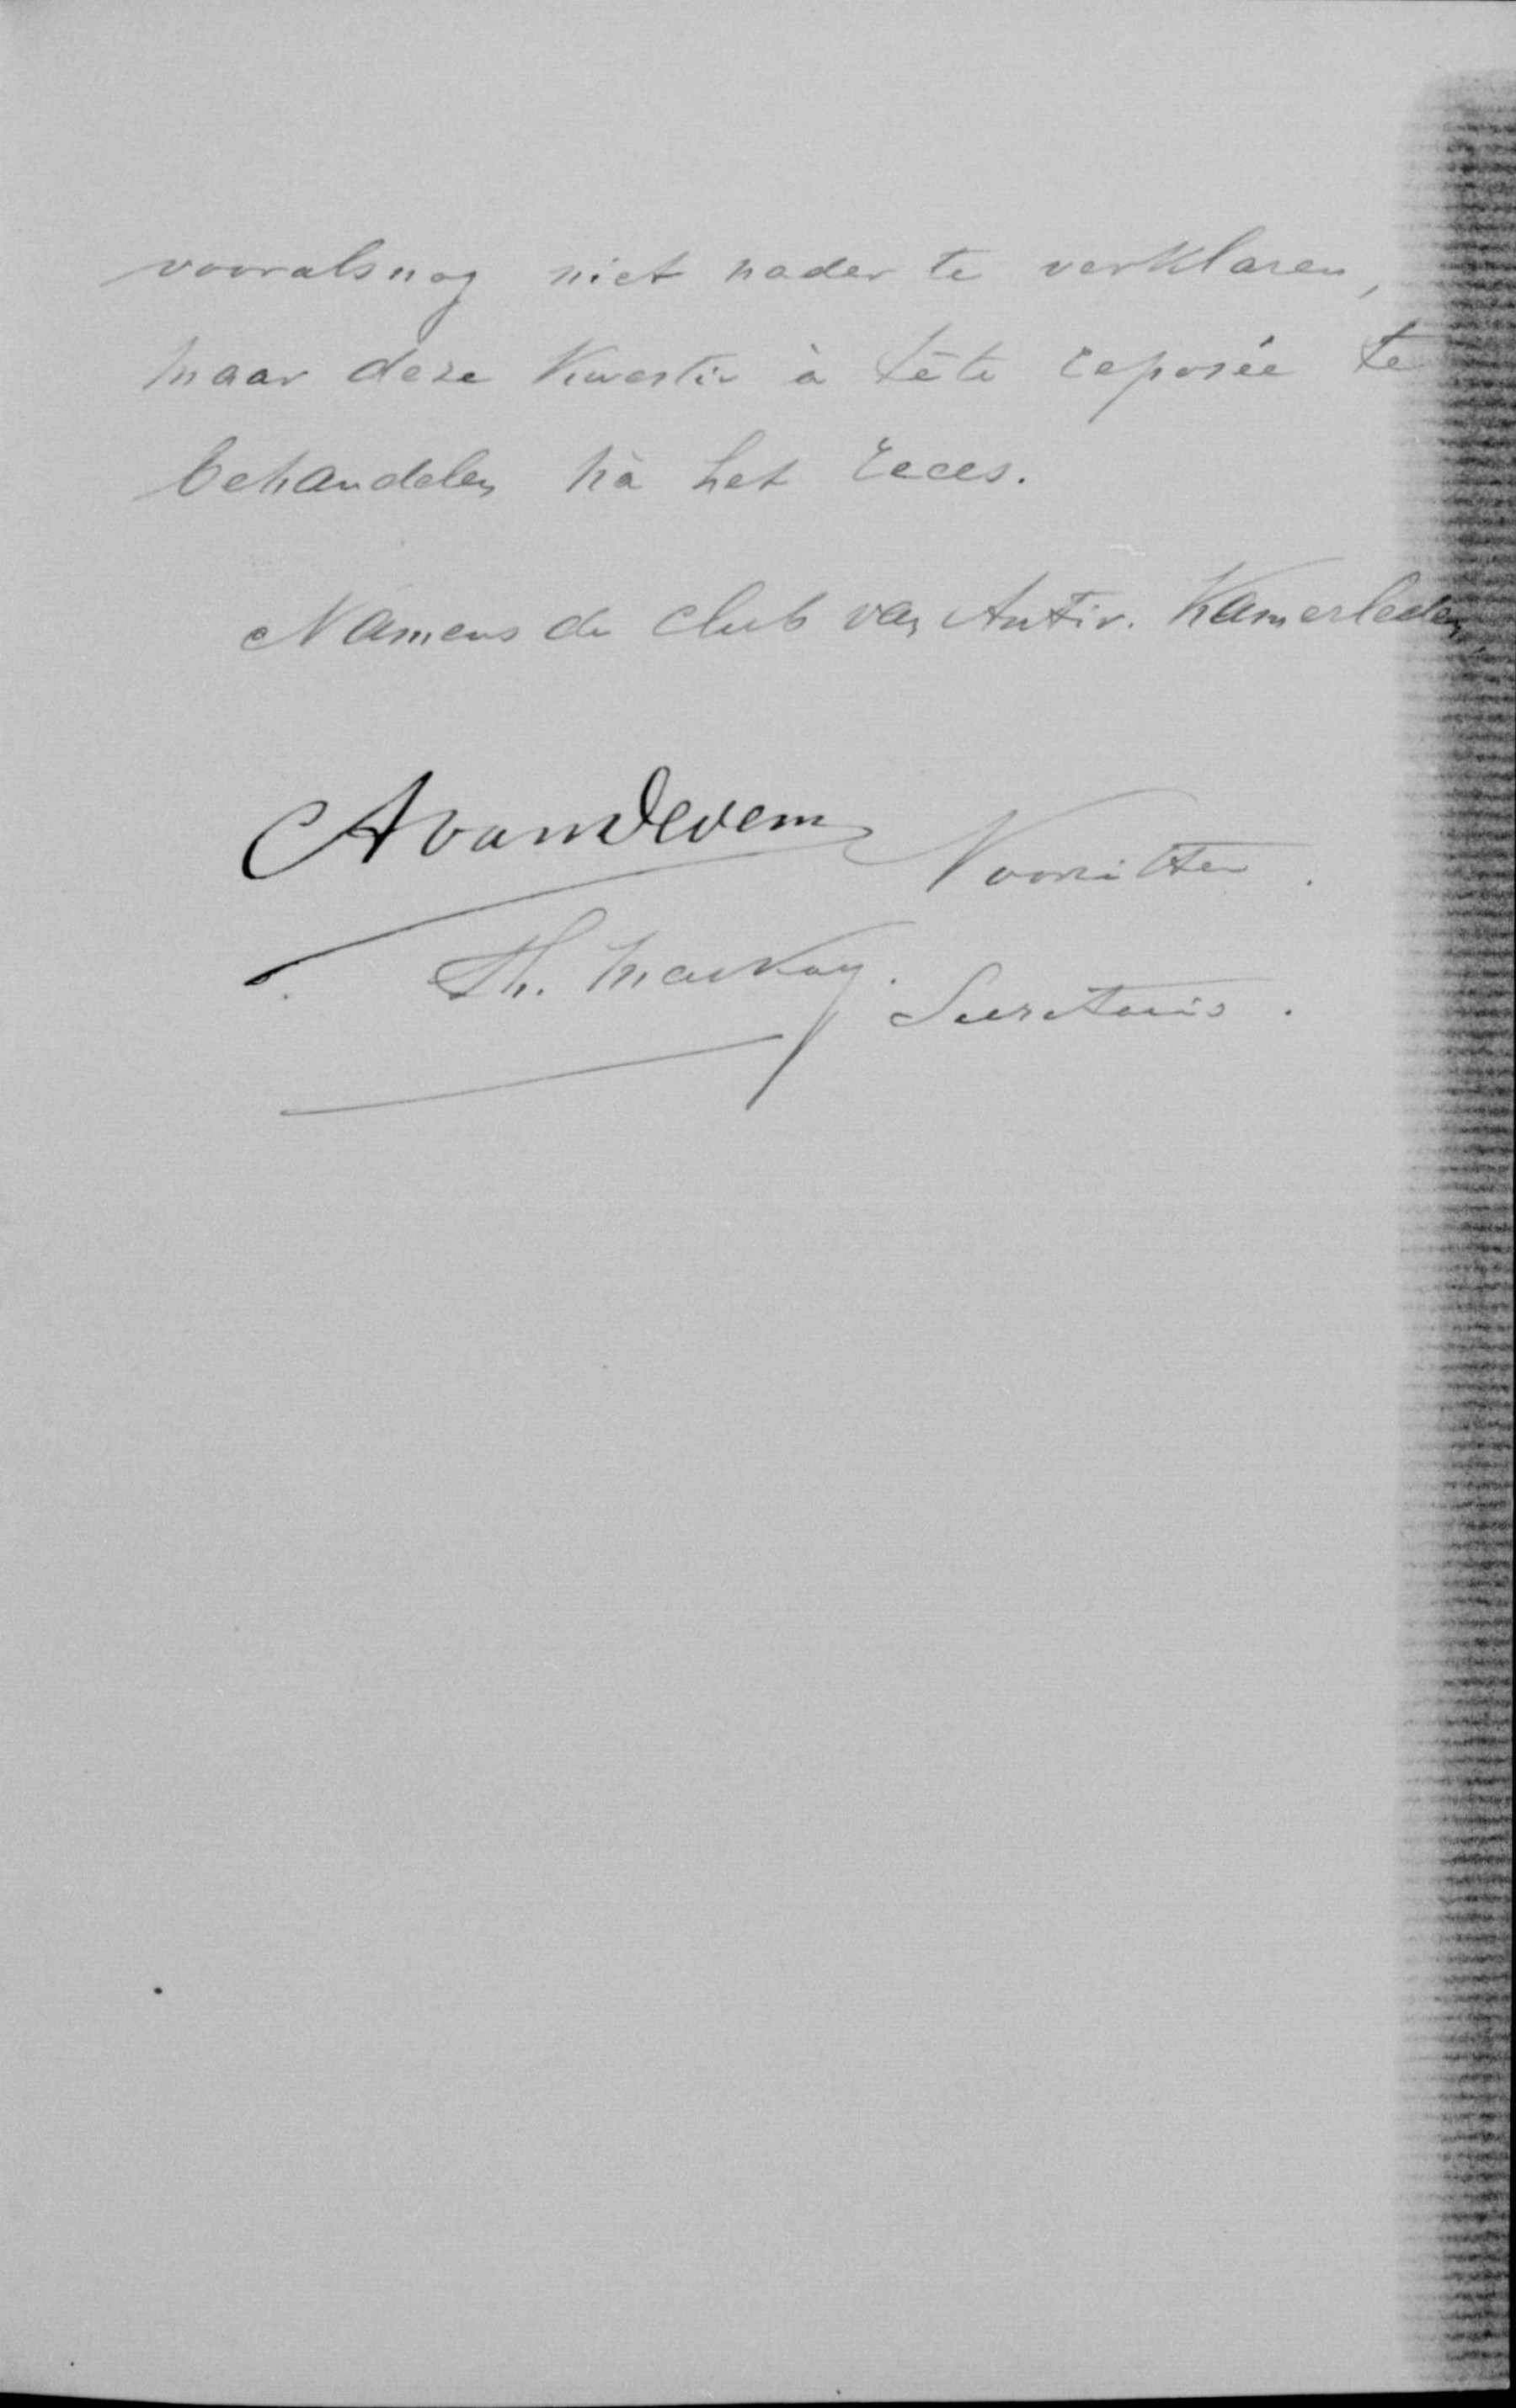 vooralsnog niet nader te verklaren,
maar deze kwestie à tête reposée te
behandelen nà het reces.
Namens de club van Antir. Kamerleden
AvanDedem Voorzitter.
Th. Mackay. Secretaris.